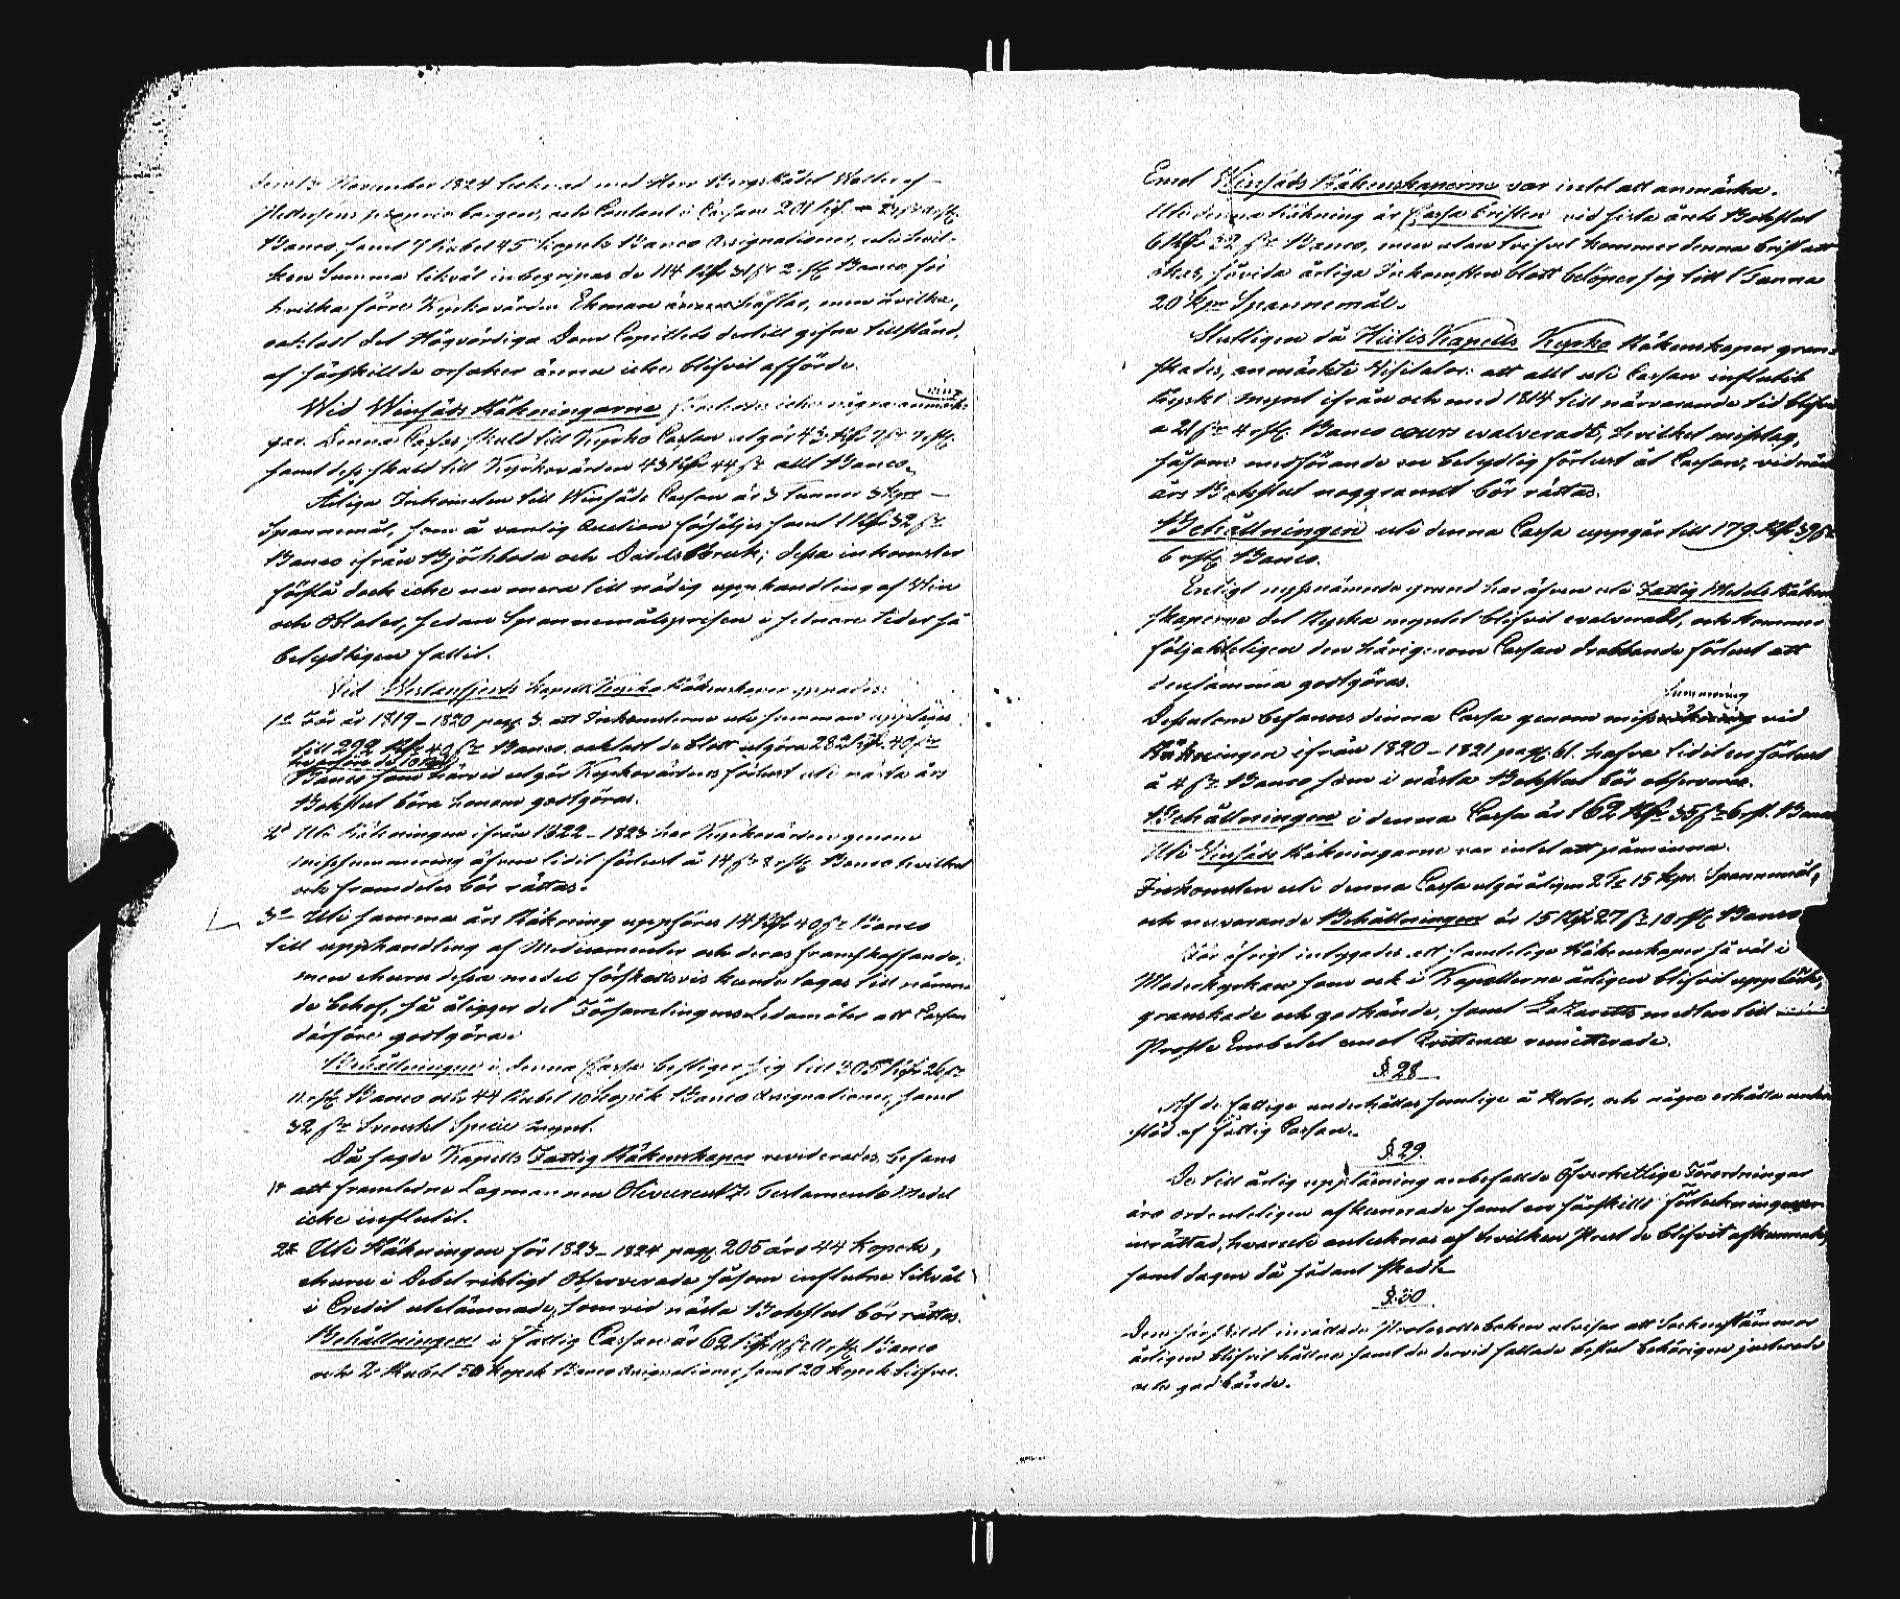 November 1824 med Herr Bergs Rådet Wolter af
Banco, samt 7 Rubel 45 Kopeks Banco Assignationer, uti hvil-
ken Summa likväl inbegripas de 114 Rdr 31 s: 2 rst. Banco, för
hvilka förre Kyrkovärden Ekman häftar, men hvilka,
oaktadt det Högvördiga Dom Capitlets dertill gifne tillstånd,
af särskillde orsaker ännu icke blifvit afförde.
Wid Winsäds Räkningarne icke några anmärk-
ningar
gar. Denna Cassas skuld till Kyrko Cassan utgör 43 Rdr 7 s: 7 rst.
samt dess skuld till Kyrkovärden 43 Rdr 44 s: allt Banco.
Årliga Inkomsten till Winsäds Cassan är 3 Tunnor 3 kpr
Spannemål, som å vanlig Auction försäljes samt 1 Rdr 32 s:
Banco ifrån Björkboda och Dals Bruk; dessa inkomster
förslå dock icke nu mera till nödig upphandling af Win
och Oblater, sedan Spannemålsprisen i sednare tider så
betydligen fallit.
Vid Westanfjerds Kapells Kyrko Räkenskaper
1o För år 1819–1820 pag. 3. att Inkomsterne uti summan upptagas
till 292 Rdr 40 s: Banco, oaktadt de blott utgöra 282 Rdr 40 s:
Banco som härvid utgör Kyrkovärdens förlust uti nästa års
Bokslut böra honom godtgöras.
2o Uti Räkningen ifrån 1822–1823 har Kyrkovärden genom
missummering äfven lidit förlust å 14 s: 8 rst. Banco hvilket
och framdeles bör rättas.
3o Uti samma års Räkning uppföres 14 Rdr 40 s: Banco
till upphandling af Medicamenter och deras framskaffande,
men ehuru dessa medel förskottsvis kunde tagas till nämn-
de behof, så åligger det Församlingens Ledamöter att Cassan
därföre godtgöra.
Behållningen i denna Cassa bestiger sig till 305 Rdr 26 s:
11 rst. Banco och 44 Rubel 10 Kopek Banco Assignationer, samt
32 s: Svenskt Specie mynt.
Då sagde Kapells Fattig Räkenskaper reviderades, befans
1o att framledne Lagmannen Testaments Medel
icke influtit.
2o Uti Räkningen för 1823–1824 pag. 205 äro 44 Kopek,
ehuru i Debet riktigt observerade såsom influtne likväl
i Credit utelämnade, som vid nästa Bokslut bör rättas.
Behållningen i Fattig Cassan är 62 Rdr 11 s: 11 rst. Banco
och 2 Rubel 50 Kopek Banco Assignationer samt 20 Kopek Silfver.
Emot Winsäds Räkenskaperne var intet att anmärka.
Uti denna Räkning är Cassa bristen vid sista årets Bokslut
6 Rdr 32 s: Banco, men utan tvifvel kommer denna brist att
ökas, såvida årliga Inkomsten blott belöper sig till 1 Tunna
20 kpr Spannemål.
Slutligen då Hiitis Kapells Kyrko Räkenskaper gran-
skades, anmärkte Visitator: att allt uti Cassan influtit
Ryskt mynt ifrån och med 1814 till närvarande tid blifvit
a 21 s: 4 rst. Banco cours evalveradt, hvilket misstag,
såsom medförande en betydlig förlust åt Cassan, vid nästa
års Bokslut noggrannt bör rättas.
Behållningen uti denna Cassa uppgår till 179 Rdr 39 s:
6 rst. Banco.
Enligt nyssnämnde grund har äfven uti Fattig Medels Räken-
skaperne det Ryska myntet blifvit evalveradt, och kommer
följakteligen den härigenom Cassan drabbande förlust att
densamma godtgöras.
summering
Dessutom befanns denna Cassa genom miss vid
Räkningen ifrån 1820–1821 pag. 61. hafva lidit en förlust
å 4 s: Banco som i nästa Bokslut bör observeras.
Behållningen i denna Cassa är 162 Rdr 35 s: 6 rst. Banco
Uti Vinsäds Räkningarne var intet att påminna.
Inkomsten uti denna Cassa utgör åligen 2 T: 15 kpr. Spannemål,
och nuvarande Behållningen är 15 Rdr 27 s: 10 rst. Banco
För öfrigt intygades att samtelige Räkenskaper så väl i
Moderkyrkan som ock i Kapellerne årligen blifvit uppläste,
granskade och godkände, samt Lazaretts medlen till
Proste Embetet emot Quittence remitterade.
§. 28
Af de fattige underhållas somlige å Rotar, och några erhålla under-
stöd af Fattig Cassan.
§. 29.
De till årlig uppläsning anbefallde Öfverhetlige Förordningar
äro ordenteligen afkunnade samt en särskilt förteckning
inrättad, hvaruti antecknas af hvilken Prest de blifvit afkunnade,
samt dagen då sådant skedt.
§. 30
Den särskildt inrättade Protocolls boken utvisar att Sockenstämmor
årligen blifvit hållne samt de dervid fattade beslut behörigen justerade
och godkände.